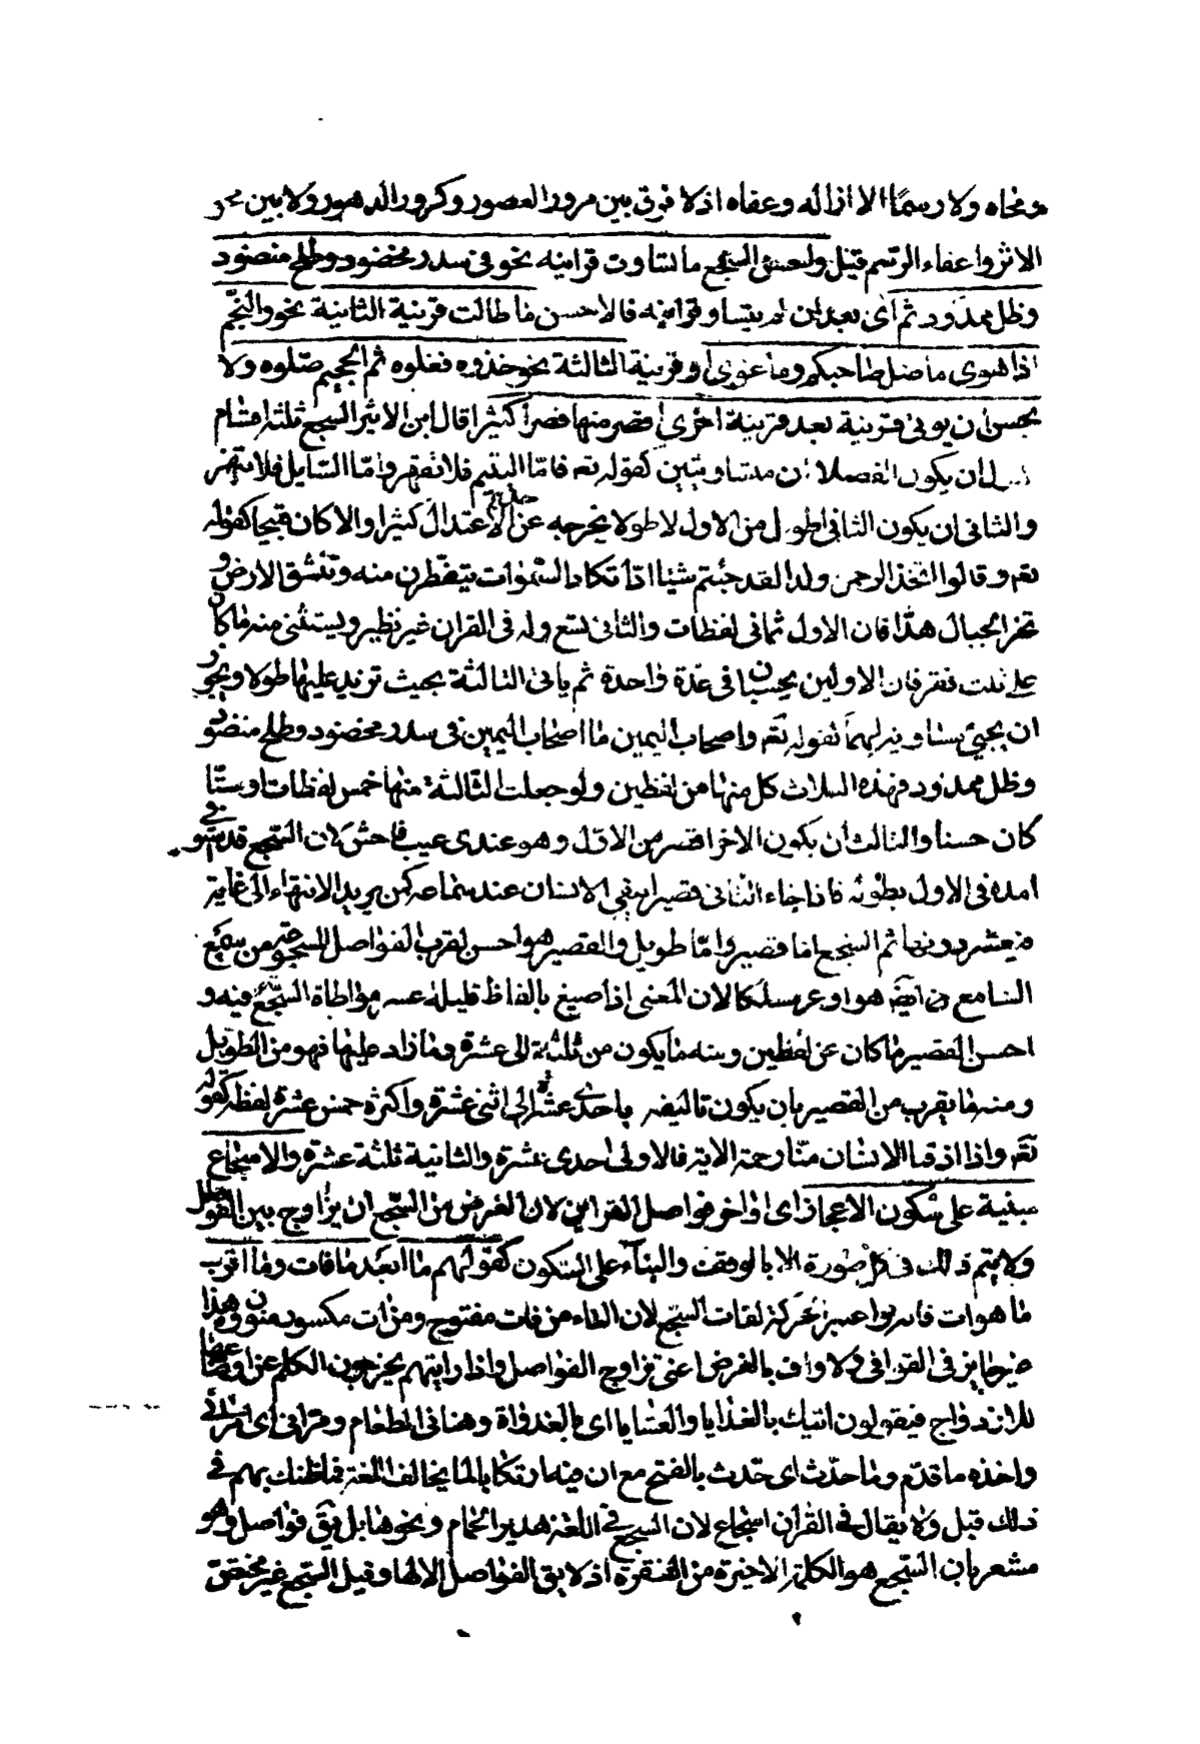 ومحاه ولا رسمًا الا ازاله وعفاه اذ لا فرق بين مرور العصور وكرور الدهور ولا بين محو
الاثر واعفاء الرسم قيل ولحسن السجع ما تساوت قراينه نحو في سدر مخضود وطلح منضود
وظل ممدود ثم اى بعد ان لم يتساو قراينه فالاحسن ما طالت قرينة الثانية نحو والنجم
اذا هوى ما ضل صاحبكم وما غوى او قرينة الثالثة نحو خذوه فغلوه ثم الجحيم صلوه ولا
يحسن ان يوتى قرينة بعد قرينة اخرى اقصر منها قصرا كثيرا قال ابن الاثير السجع ثلثة اقسام
ان يكون الفصلان متساويتين كقوله تعه فامّا اليتيم فلا تقهر وامّا السّايل فلا تنهر
والثانى ان يكون الثانى اطول من الاول لا طولا يخرجه عن الاعتدال كثيرا والا كان قبيحا كقوله
تعه وقالوا اتّخذ الرحمن ولدا لقد جئتم شيئا ادّا تكاد السّموات يتفطرن منه وتنشق الارض و
تخر الجبال هدّا فان الاول ثمانى لفظات والثانى تسع وله فى القران غير نظير ويستثنى منه ما كان
على ثلث فقر فان الاولين يحسبان فى عدّة واحدة ثم ياتى الثالثة بحيث تزيد عليها طولا ويجوز
ان يجيئ مساوية لهما كقوله تعه واصحاب اليمين ما اصحاب اليمين فى سدر مخضود وطلح منضود
وظل ممدود فهذه الثلاث كل منها من لفظين ولو جعلت الثالثة منها خمس لفظات او ستّا
كان حسنا والثالث ان يكون الاخر اقصر من الاوّل وهو عندى عيب فاحش لان السّجع قد استوفى
امده فى الاول بطوله فاذا جاء الثانى قصيرا يبقى الانسان عند سماعه كمن يريد الانتهاء الى غاية
فيعثر دونها ثم السجع اما قصير وامّا طويل والقصير هو احسن لقرب الفواصل المسجوعة من سمع
السّامع وايضا هو اوعر مسلكا لان المعنى اذا صيغ بالفاظ قليلة عسر مواطاة السّجع فيه و
احسن القصير ما كان عن لفظين ومنه ما يكون من ثلثة الى عشرة وما زاد عليها فهو من الطويل
ومنه ما يقرب من القصير بان يكون تاليفه باحدى عشرة الى اثنى عشرة واكثره خمس عشرة لفظة كقوله
تعه واذا اذقنا الانسان منّا رحمة الاية فالاولى احدى عشرة والثانية ثلثة عشرة والاسجاع
مبنية على سكون الاعجاز اى اواخر فواصل القراين لان الغرض من السّجع ان يزاوج بين الفواصل
ولا يتم ذلك فى كل صورة الا بالوقف والبنآء على السّكون كقولهم ما ابعد ما فات وما اقرب
ما هوات فانه لو اعتبر الحركة لفات السّجع لان التاء من فات مفتوح ومن ات مكسور منون وهذا
غير جايز فى القوافى ولا واف بالغرض اعنى تزاوج الفواصل واذا رايتهم يخرجون الكلم عن اوضاعها
للازدواج فيقولون اتيك بالغدايا والعشايا اى بالغدواة وهنانى الطعام ومرانى اى امرانى
واخذه ما قدّم وما حدّث اى حدث بالفتح مع ان فيه ارتكابا لما يخالف اللغة فما ظنك بهم فى
ذلك قيل ولا يقال فى القران اسجاع لان السجع فى اللغة هدير الحمام ونحوها بل يق فواصل وهو
مشعر بان السّجع هو الكلمة الاخيرة من الفقرة اذ لا يق الفواصل الا لها وقيل السّجع غير مختصّ